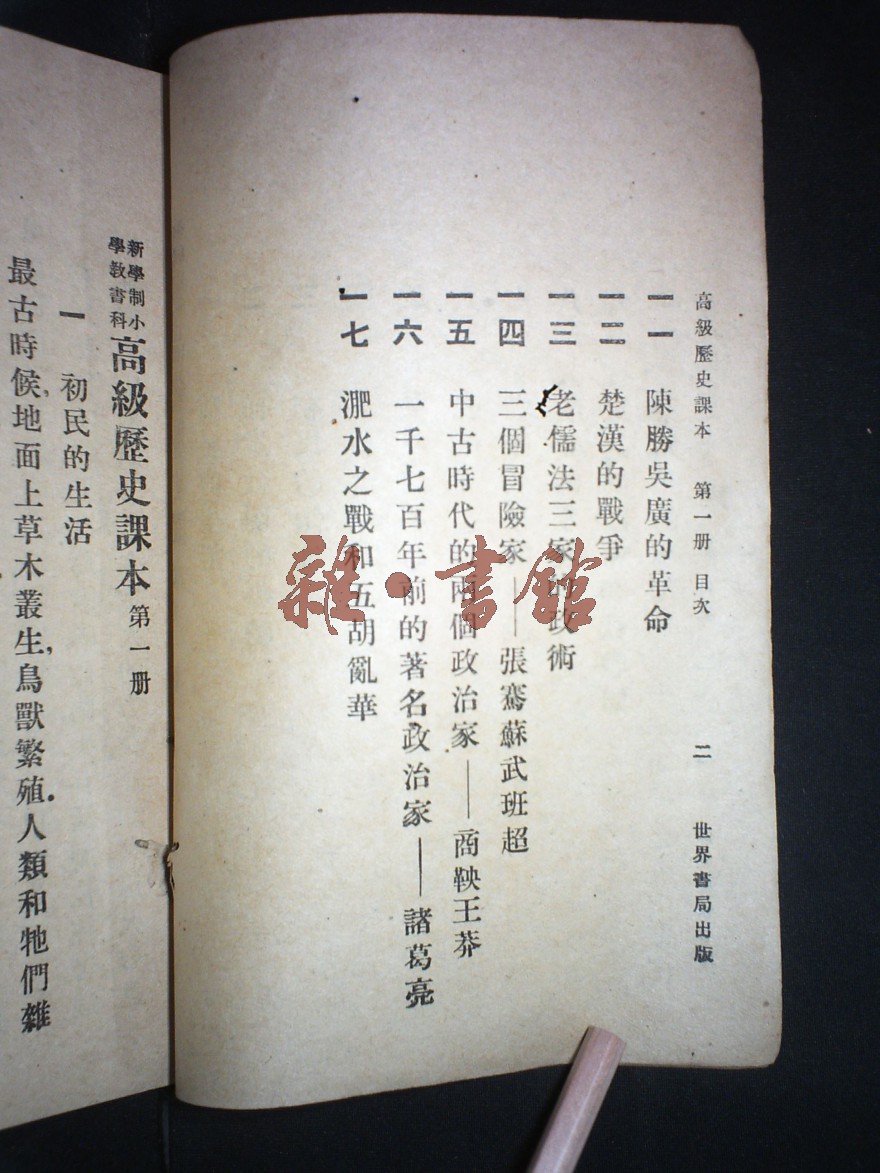 高級歷史課本 第一册 目次 二 世界書局出版
一一 陳勝吳廣的革命
一二 楚漢的戰爭
一三 老儒法三家的政術
一四 三個冒險家——張騫蘇武班超
一五 中古時代的兩個政治家——商鞅王莽
一六 一千七百年前的著名政治家——諸葛亮
一七 淝水之戰和五胡亂華
新學制小
學教書科
高級歷史課本 第一册
一 初民的生活
最古時候,地面上草木叢生,鳥獸繁殖.人類和牠們雜
雜·書館